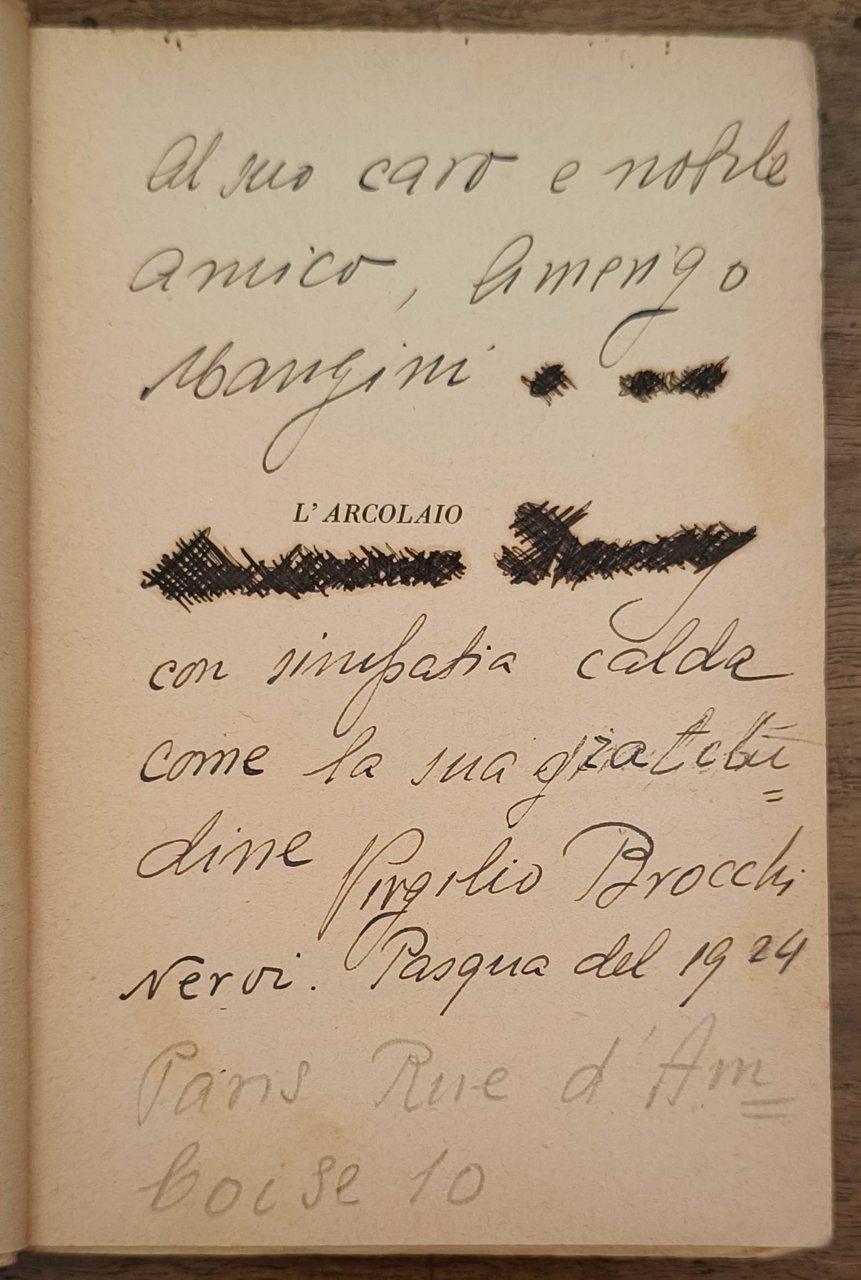 Al suo caro e nobile
amico, Amerigo
Mangini
L'ARCOLAIO
con simpatia calda
come la sua gratitu=
dine Virgilio Brocchi
Nervi. Pasqua del 1924
Paris Rue d'Am=
boise 10